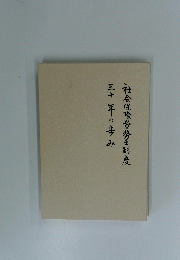 社会保険労務士制度
三十年の歩み